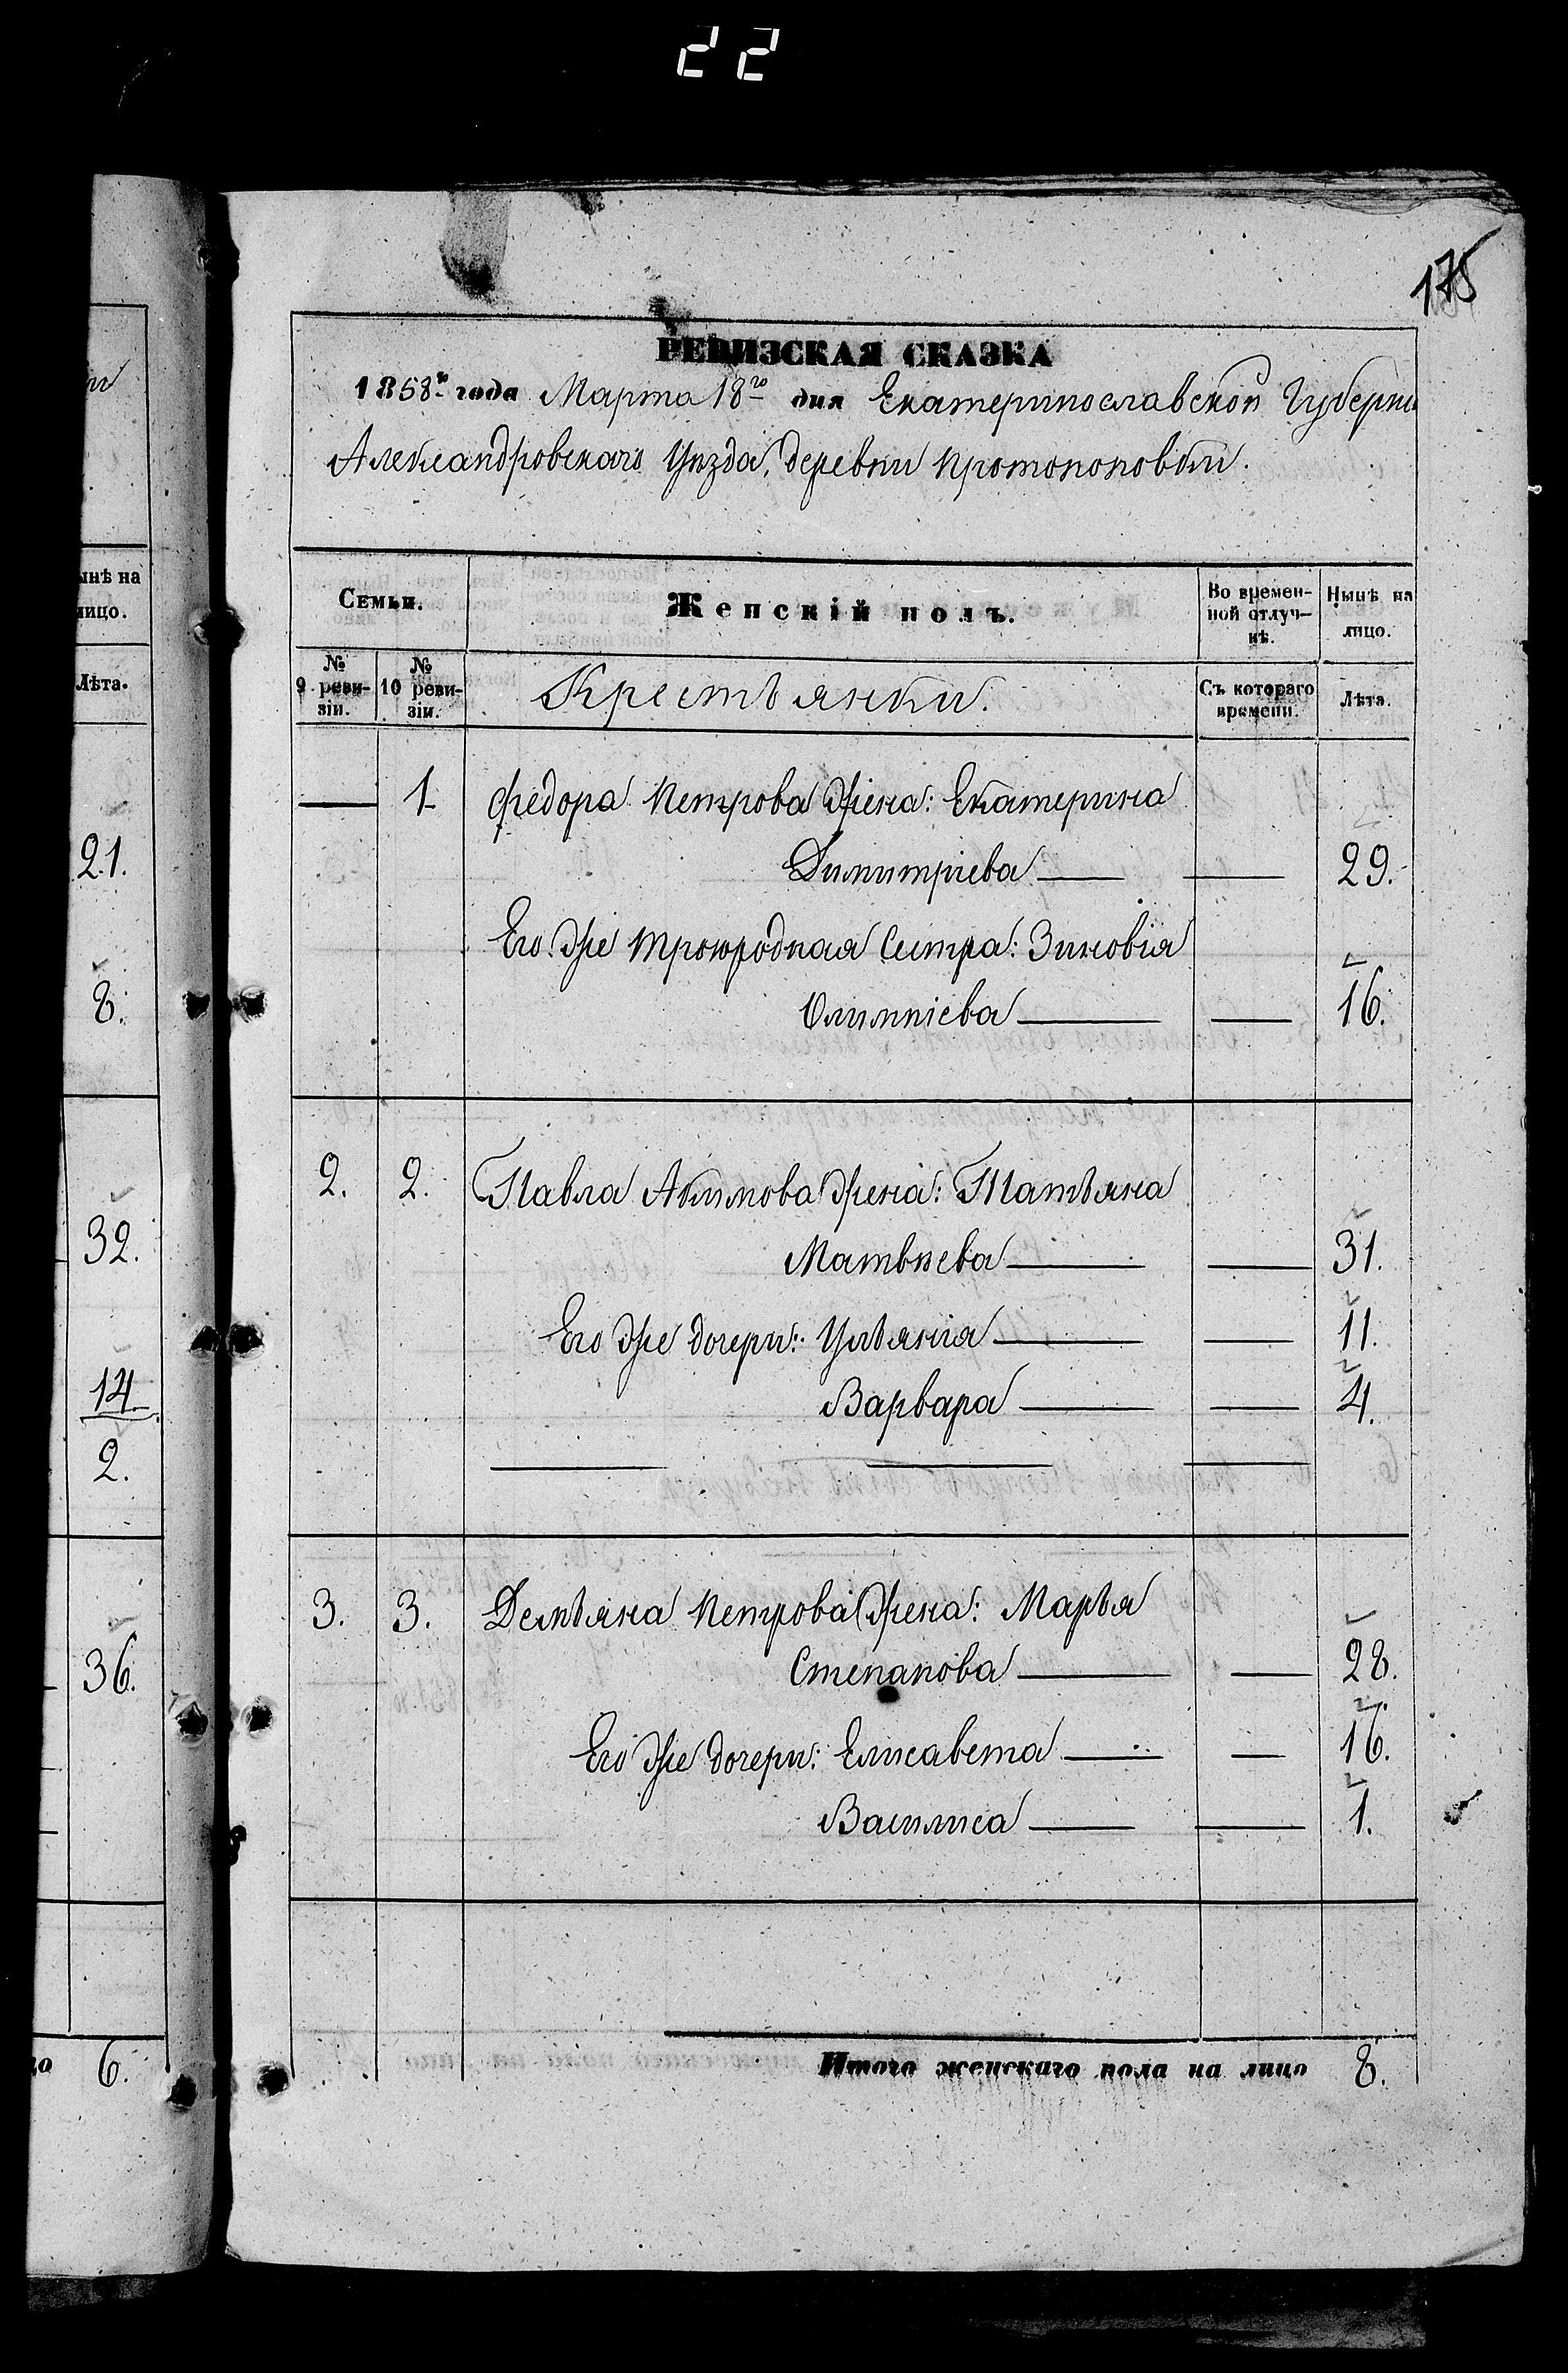 22
175
РЕВИЗСКАЯ СКАЗКА
1858го года Марта 18го дня Екатеринославской Губерни
Александровскаго Уѣзда, деревни Протопоповки.
Семьи.
Женскій полъ.
Во времен-
ной отлуч-
кѣ.
Нынѣ на
лицо.
№
9 реви-
зіи.
№
10 реви-
зіи.
Крестьянки.
Съ котораго
времени.
Лѣта.
1 Федора Петрова жена: Екатерина
Димитріева 29.
Его же троюродная сестра: Зиновія
Олимпіева 16.
2. 2. Павла Акимова жена: Татьяна
Матвѣева 31.
Его же дочери: Ульянія 11.
Варвара 4.
3. 3. Демьяна Петрова жена: Марья
Степанова 28.
Его же дочери: Елисавета 16.
Василиса 1.
Итого женскаго пола на лицо 8.
ынѣ на
лицо.
Лѣта.
21.
8.
32.
14
2.
36.
6.